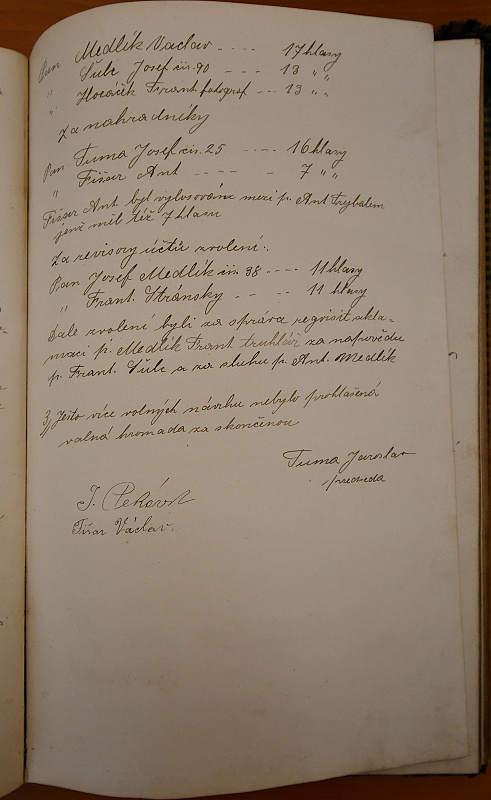 Pan Medlík Vaclav - - - - 17 hlasy
„ Šulc Josef čís. 90 - - - 13 „ „
„ Horáček Frant. fotograf - - - 13 „ „
Za nahradníky
Pan Tuma Josef čís. 25 - - - - 16 hlasy
„ Fišar Ant - - - - - 7 „ „
Fišar Ant. byl vylosován mezi p. Ant Trybalem
jenž měl též 7 hlasu
Za revisory účtů zvolení:
Pan Josef Medlík čís. 98 - - - - 11 hlasy
„ Frant. Stránsky - - - - 11 hlasy
Dale zvolení byli za správce
p. Medlík Frant truhlář za napovědu
p. Frant. Šulc a za sluhu p. Ant. Medlík
3, Jesto více volných návrhu nebylo prohlašená
valná hromada za skončenou
Tuma Jaroslav
předseda
Fišar Václav.